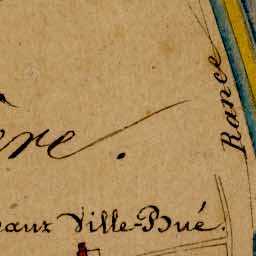 ère.
Rance
aux Ville-Bué.